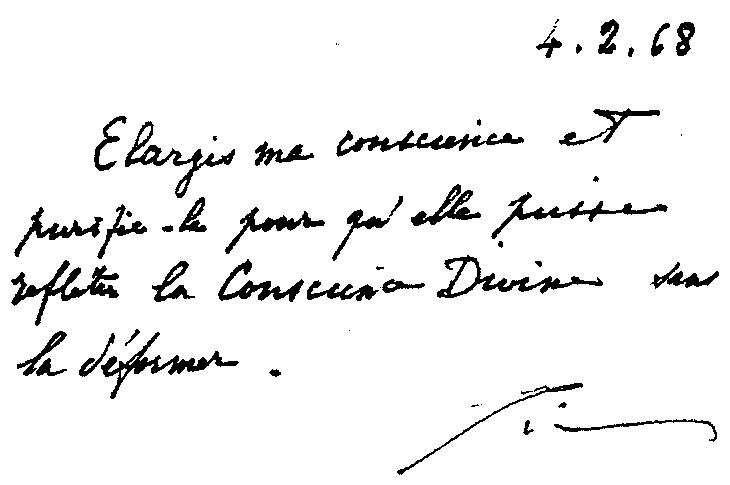 4.2.68
Elargis ma conscience et
purifie-la pour qu'elle puisse
refléter la Conscience Divine sans
la déformer.